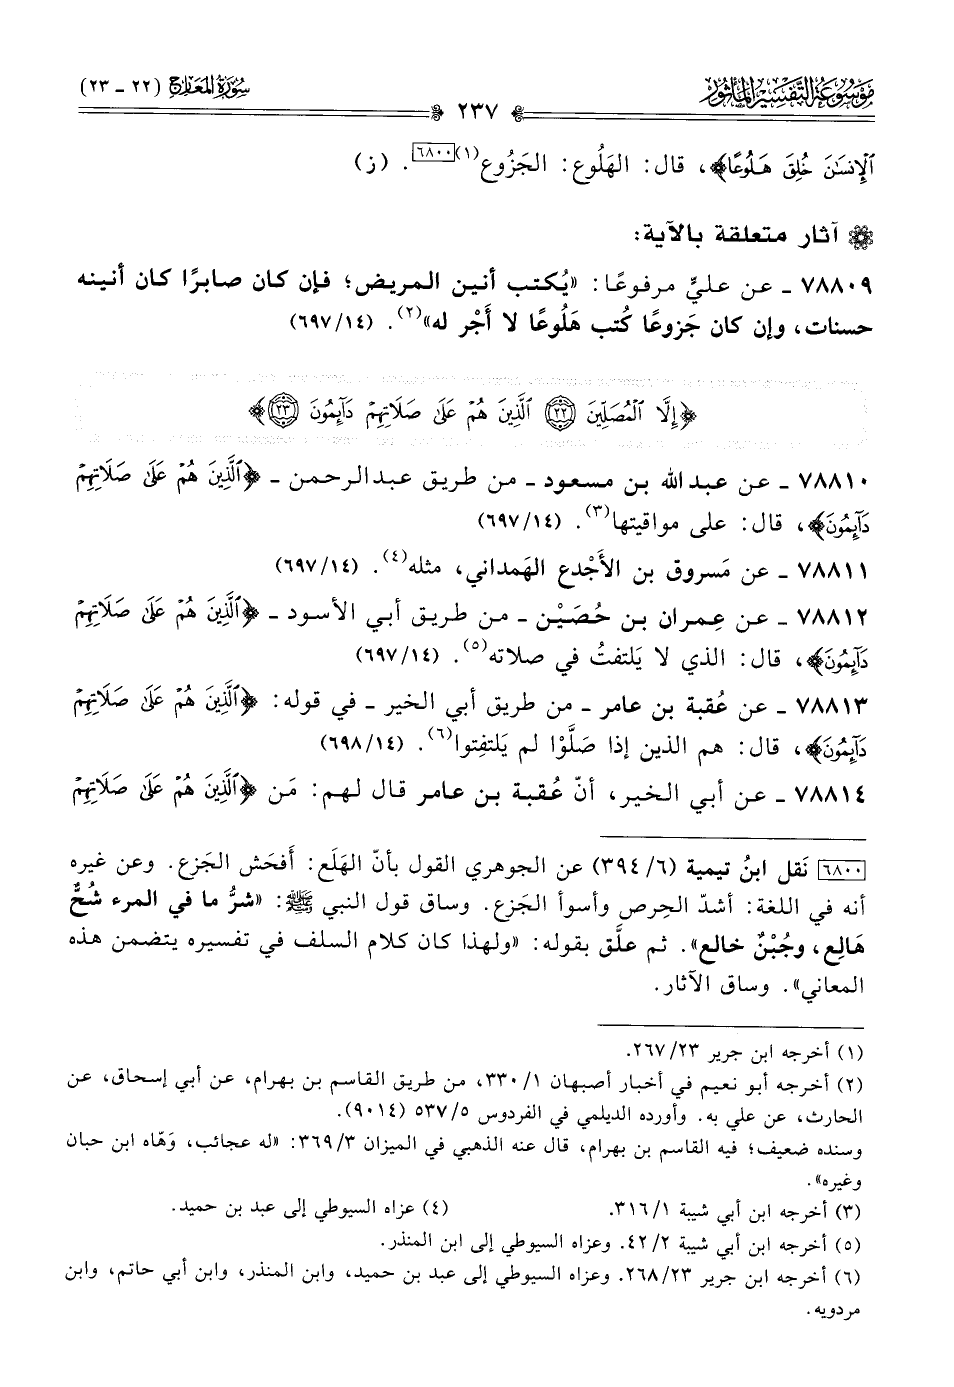 مَوْسُوعَةُ التَّفْسِيرِ المَأْثُورِ
سُورَةُ المَعَارِجِ (٢٢ - ٢٣)
٢٣٧
ٱلْإِنسَٰنَ خُلِقَ هَلُوعًا﴾، قال: الهَلُوع: الجَزُوع(١)[٦٨٠٠]. (ز)
آثار متعلقة بالآية:
٧٨٨٠٩ - عن عليٍّ مرفوعًا: «يُكتب أنين المريض؛ فإن كان صابرًا كان أنينه
حسنات، وإن كان جَزوعًا كُتب هَلُوعًا لا أَجْر له»(٢). (٦٩٧/١٤)
﴿إِلَّا ٱلْمُصَلِّينَ ٢٢ ٱلَّذِينَ هُمْ عَلَىٰ صَلَاتِهِمْ دَآئِمُونَ ٢٣﴾
٧٨٨١٠ - عن عبد الله بن مسعود - من طريق عبدالرحمن - ﴿ٱلَّذِينَ هُمْ عَلَىٰ صَلَاتِهِمْ
دَآئِمُونَ﴾، قال: على مواقيتها(٣). (٦٩٧/١٤)
٧٨٨١١ - عن مَسروق بن الأَجْدع الهَمداني، مثله(٤). (٦٩٧/١٤)
٧٨٨١٢ - عن عِمران بن حُصَيْن - من طريق أبي الأسود - ﴿ٱلَّذِينَ هُمْ عَلَىٰ صَلَاتِهِمْ
دَآئِمُونَ﴾، قال: الذي لا يَلتفتُ في صلاته(٥). (٦٩٧/١٤)
٧٨٨١٣ - عن عُقبة بن عامر - من طريق أبي الخير - في قوله: ﴿ٱلَّذِينَ هُمْ عَلَىٰ صَلَاتِهِمْ
دَآئِمُونَ﴾، قال: هم الذين إذا صَلَّوْا لم يَلتفِتوا(٦). (٦٩٨/١٤)
٧٨٨١٤ - عن أبي الخير، أنّ عُقبة بن عامر قال لهم: مَن ﴿ٱلَّذِينَ هُمْ عَلَىٰ صَلَاتِهِمْ
[٦٨٠٠] نَقل ابنُ تيمية (٣٩٤/٦) عن الجوهري القول بأنّ الهَلَع: أَفحَش الجَزع. وعن غيره
أنه في اللغة: أشدّ الحِرص وأسوأ الجَزع. وساق قول النبي ﷺ: «شرُّ ما في المرء شُحٌّ
هَالِع، وجُبْنٌ خالع». ثم علَّق بقوله: «ولهذا كان كلام السلف في تفسيره يتضمن هذه
المعاني». وساق الآثار.
(١) أخرجه ابن جرير ٢٦٧/٢٣.
(٢) أخرجه أبو نعيم في أخبار أصبهان ٣٣٠/١، من طريق القاسم بن بهرام، عن أبي إسحاق، عن
الحارث، عن علي به. وأورده الديلمي في الفردوس ٥٣٧/٥ (٩٠١٤).
وسنده ضعيف؛ فيه القاسم بن بهرام، قال عنه الذهبي في الميزان ٣٦٩/٣: «له عجائب، وَهّاه ابن حبان
وغيره».
(٣) أخرجه ابن أبي شيبة ٣١٦/١.
(٤) عزاه السيوطي إلى عبد بن حميد.
(٥) أخرجه ابن أبي شيبة ٤٢/٢. وعزاه السيوطي إلى ابن المنذر.
(٦) أخرجه ابن جرير ٢٦٨/٢٣. وعزاه السيوطي إلى عبد بن حميد، وابن المنذر، وابن أبي حاتم، وابن
مردويه.